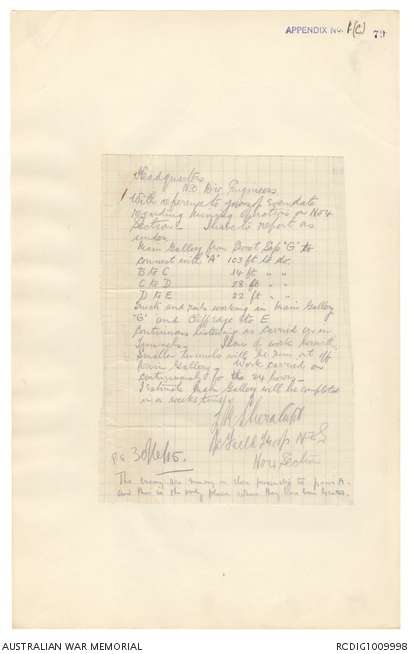 APPENDIX No. 1(C) 79
Headquarters
N.Z. Div Engineers
With reference to yours of even date
regarding mining operations on No 4
Section - I have to report as
under
Main Gallery from Boot Sap "G" to
connect with "A" 103 ft to do.
B to C 14 ft " "
C to D 28 ft " "
D to E 22 ft " "
Truck and rails working in Main Gallery
"G" and Cliff edge to E
Continuous listening is carried on in
Tunnels. Plan of work herewith
Smaller tunnels will be run out off
Main Gallery. Work carried on
continuously for the 24 hours.
I estimate Main Gallery will be completed
in a weeks time
Capt
Field Troop N.Z.E
No 4 Section
The enemy are mining in close proximity to A.
and this is the only place where they have been
AUSTRALIAN WAR MEMORIAL
RCDIG1009998